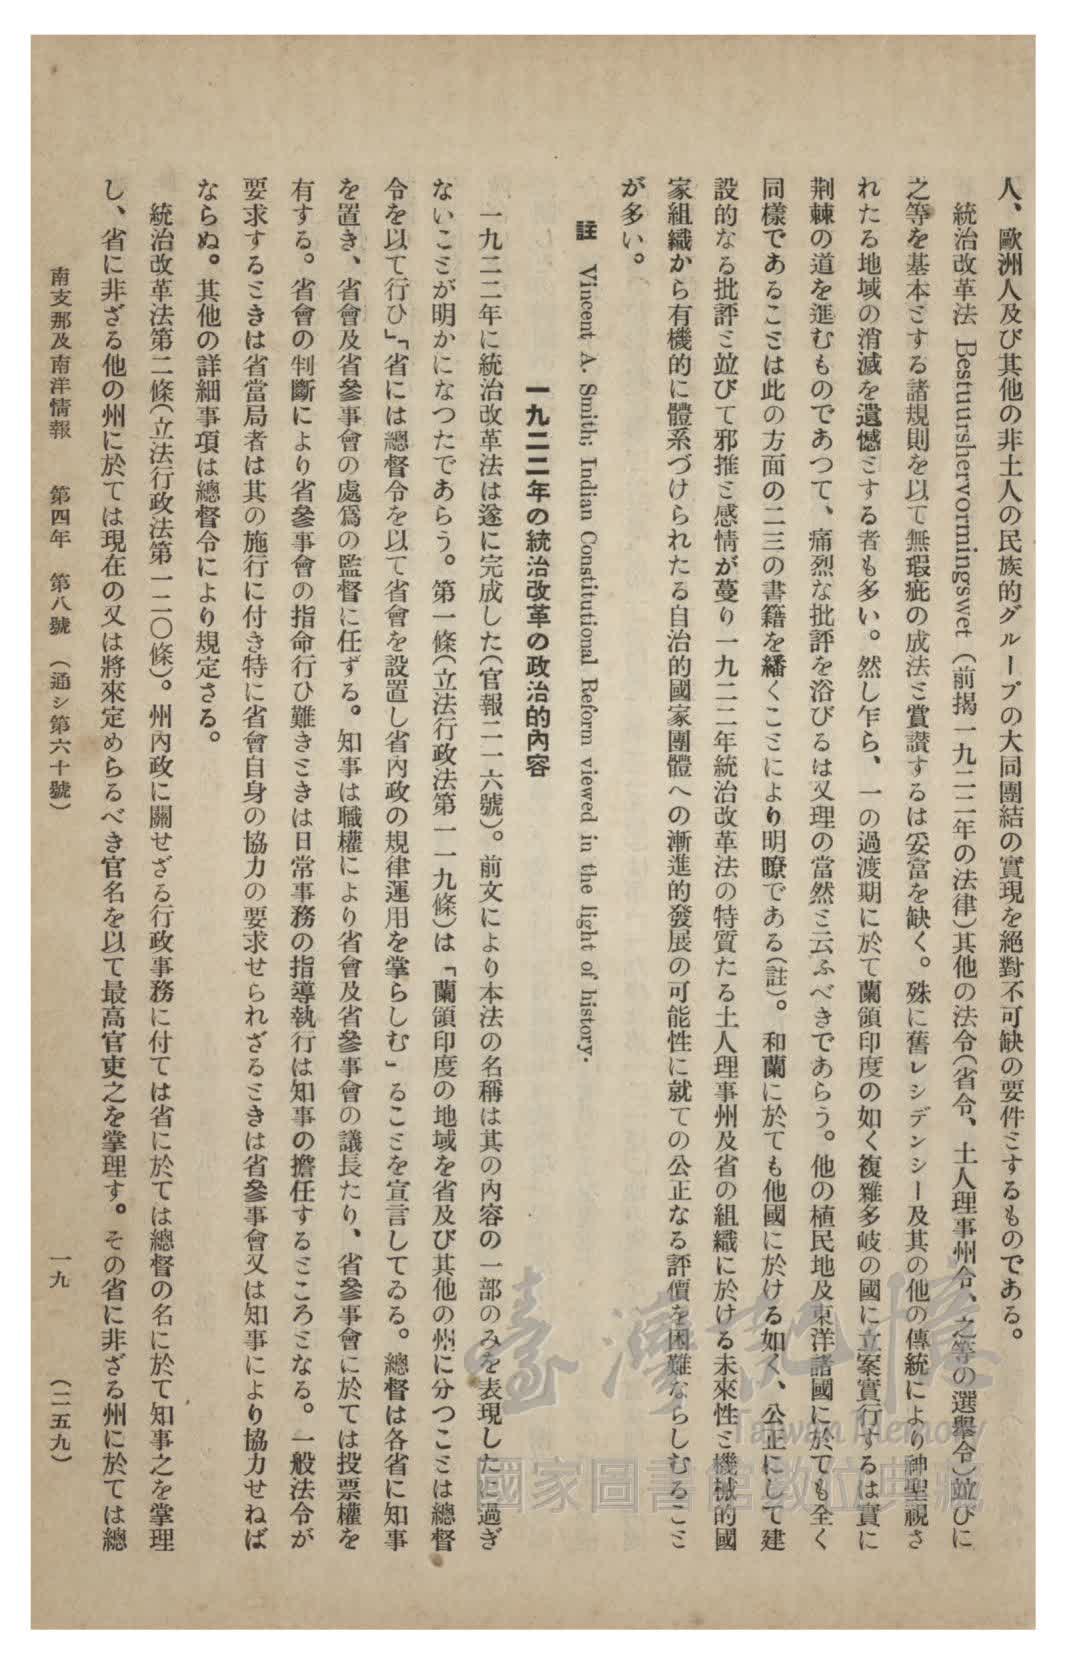 人、歐洲人及び其他の非土人の民族的グループの大同團結の實現を絕對不可缺の要件ミするものである。
統治改革法 Bestuurshervormingswet（前揭一九二二年の法律）其他の法令（省令、土人理事州令、之等の選擧令）竝びに
之等を基本ミする諸規則を以て無瑕疵の成法ミ賞讃するは妥當を缺く。殊に舊レシデンシー及其の他の傳統により神聖視さ
れたる地域の消滅を遺憾ミする者も多い。然し乍ら、一の過渡期に於て蘭領印度の如く複雜多岐の國に立案實行するは實に
荆棘の道を進むものであつて、痛烈な批評を浴びるは又理の當然ミ云ふべきであらう。他の植民地及東洋諸國に於ても全く
同樣であるこミは此の方面の二三の書籍を繙くこミにより明瞭である（註）。和蘭に於ても他國に於ける如く、公正にして建
設的なる批評ミ竝びて邪推ミ感情が蔓り一九二二年統治改革法の特質たる土人理事州及省の組織に於ける未來性ミ機械的國
家組織から有機的に體系づけられたる自治的國家團體への漸進的發展の可能性に就ての公正なる評價を困難ならしむるこミ
が多い。
註 Vincent A. Smith; Indian Constitutional Reform viewed in the light of history.
一九二二年の統治改革の政治的內容
一九二二年に統治改革法は遂に完成した（官報二一六號）。前文により本法の名稱は其の內容の一部のみを表現したに過ぎ
ないこミが明かになつたであらう。第一條（立法行政法第一一九條）は「蘭領印度の地域を省及び其他の州に分つこミは總督
令を以て行ひ」「省には總督令を以て省會を設置し省內政の規律運用を掌らしむ」るこミを宣言してゐる。總督は各省に知事
を置き、省會及省參事會の處爲の監督に任ずる。知事は職權により省會及省參事會の議長たり、省參事會に於ては投票權を
有する。省會の判斷により省參事會の指命行ひ難きミきは日常事務の指導執行は知事の擔任するミころミなる。一般法令が
要求するミきは省當局者は其の施行に付き特に省會自身の協力の要求せられざるミきは省參事會又は知事により協力せねば
ならぬ。其他の詳細事項は總督令により規定さる。
統治改革法第二條（立法行政法第一二〇條）。州內政に關せざる行政事務に付ては省に於ては總督の名に於て知事之を掌理
し、省に非ざる他の州に於ては現在の又は將來定めらるべき官名を以て最高官吏之を掌理す。その省に非ざる州に於ては總
南支那及南洋情報　第四年　第八號　（通シ第六十號）　一九　（二五九）
臺灣記憶
Taiwan Memory
國家圖書館數位典藏